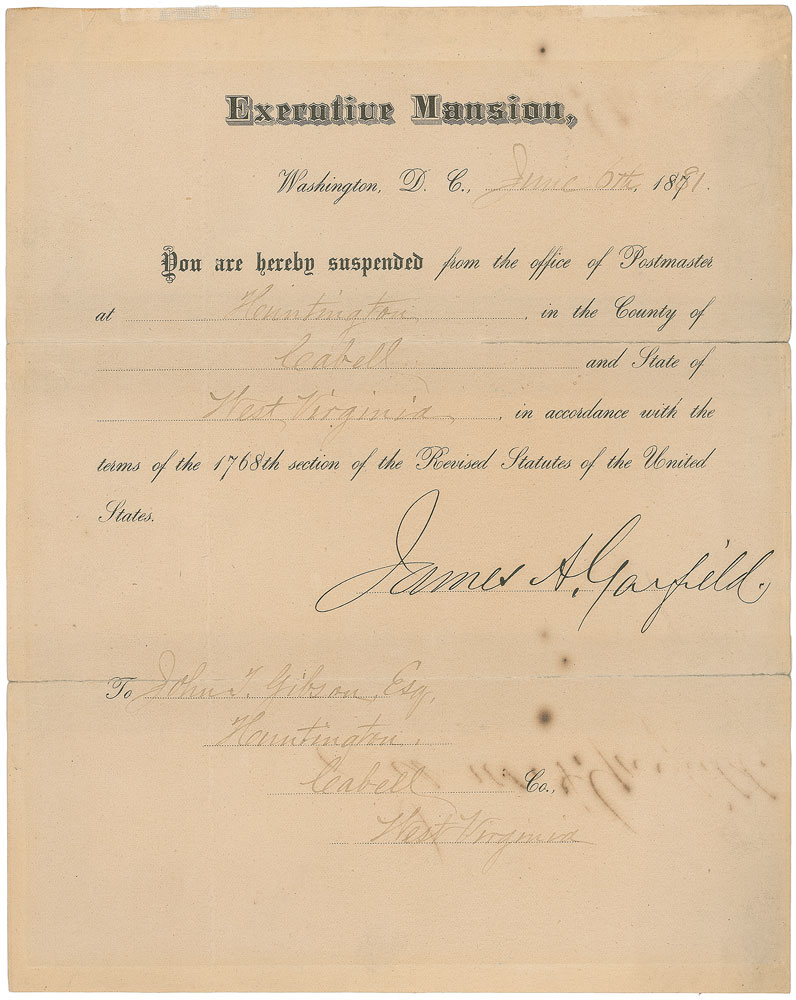 Executive Mansion,
Washington, D. C., June 1881.
You are hereby suspended from the office of Postmaster
at Huntington, in the County of
Cabell and State of
West Virginia, in accordance with the
terms of the 1768th section of the Revised Statutes of the United
States.
James A. Garfield.
To John T. Gibson, Esq,
Huntington,
Cabell Co.,
West Virginia